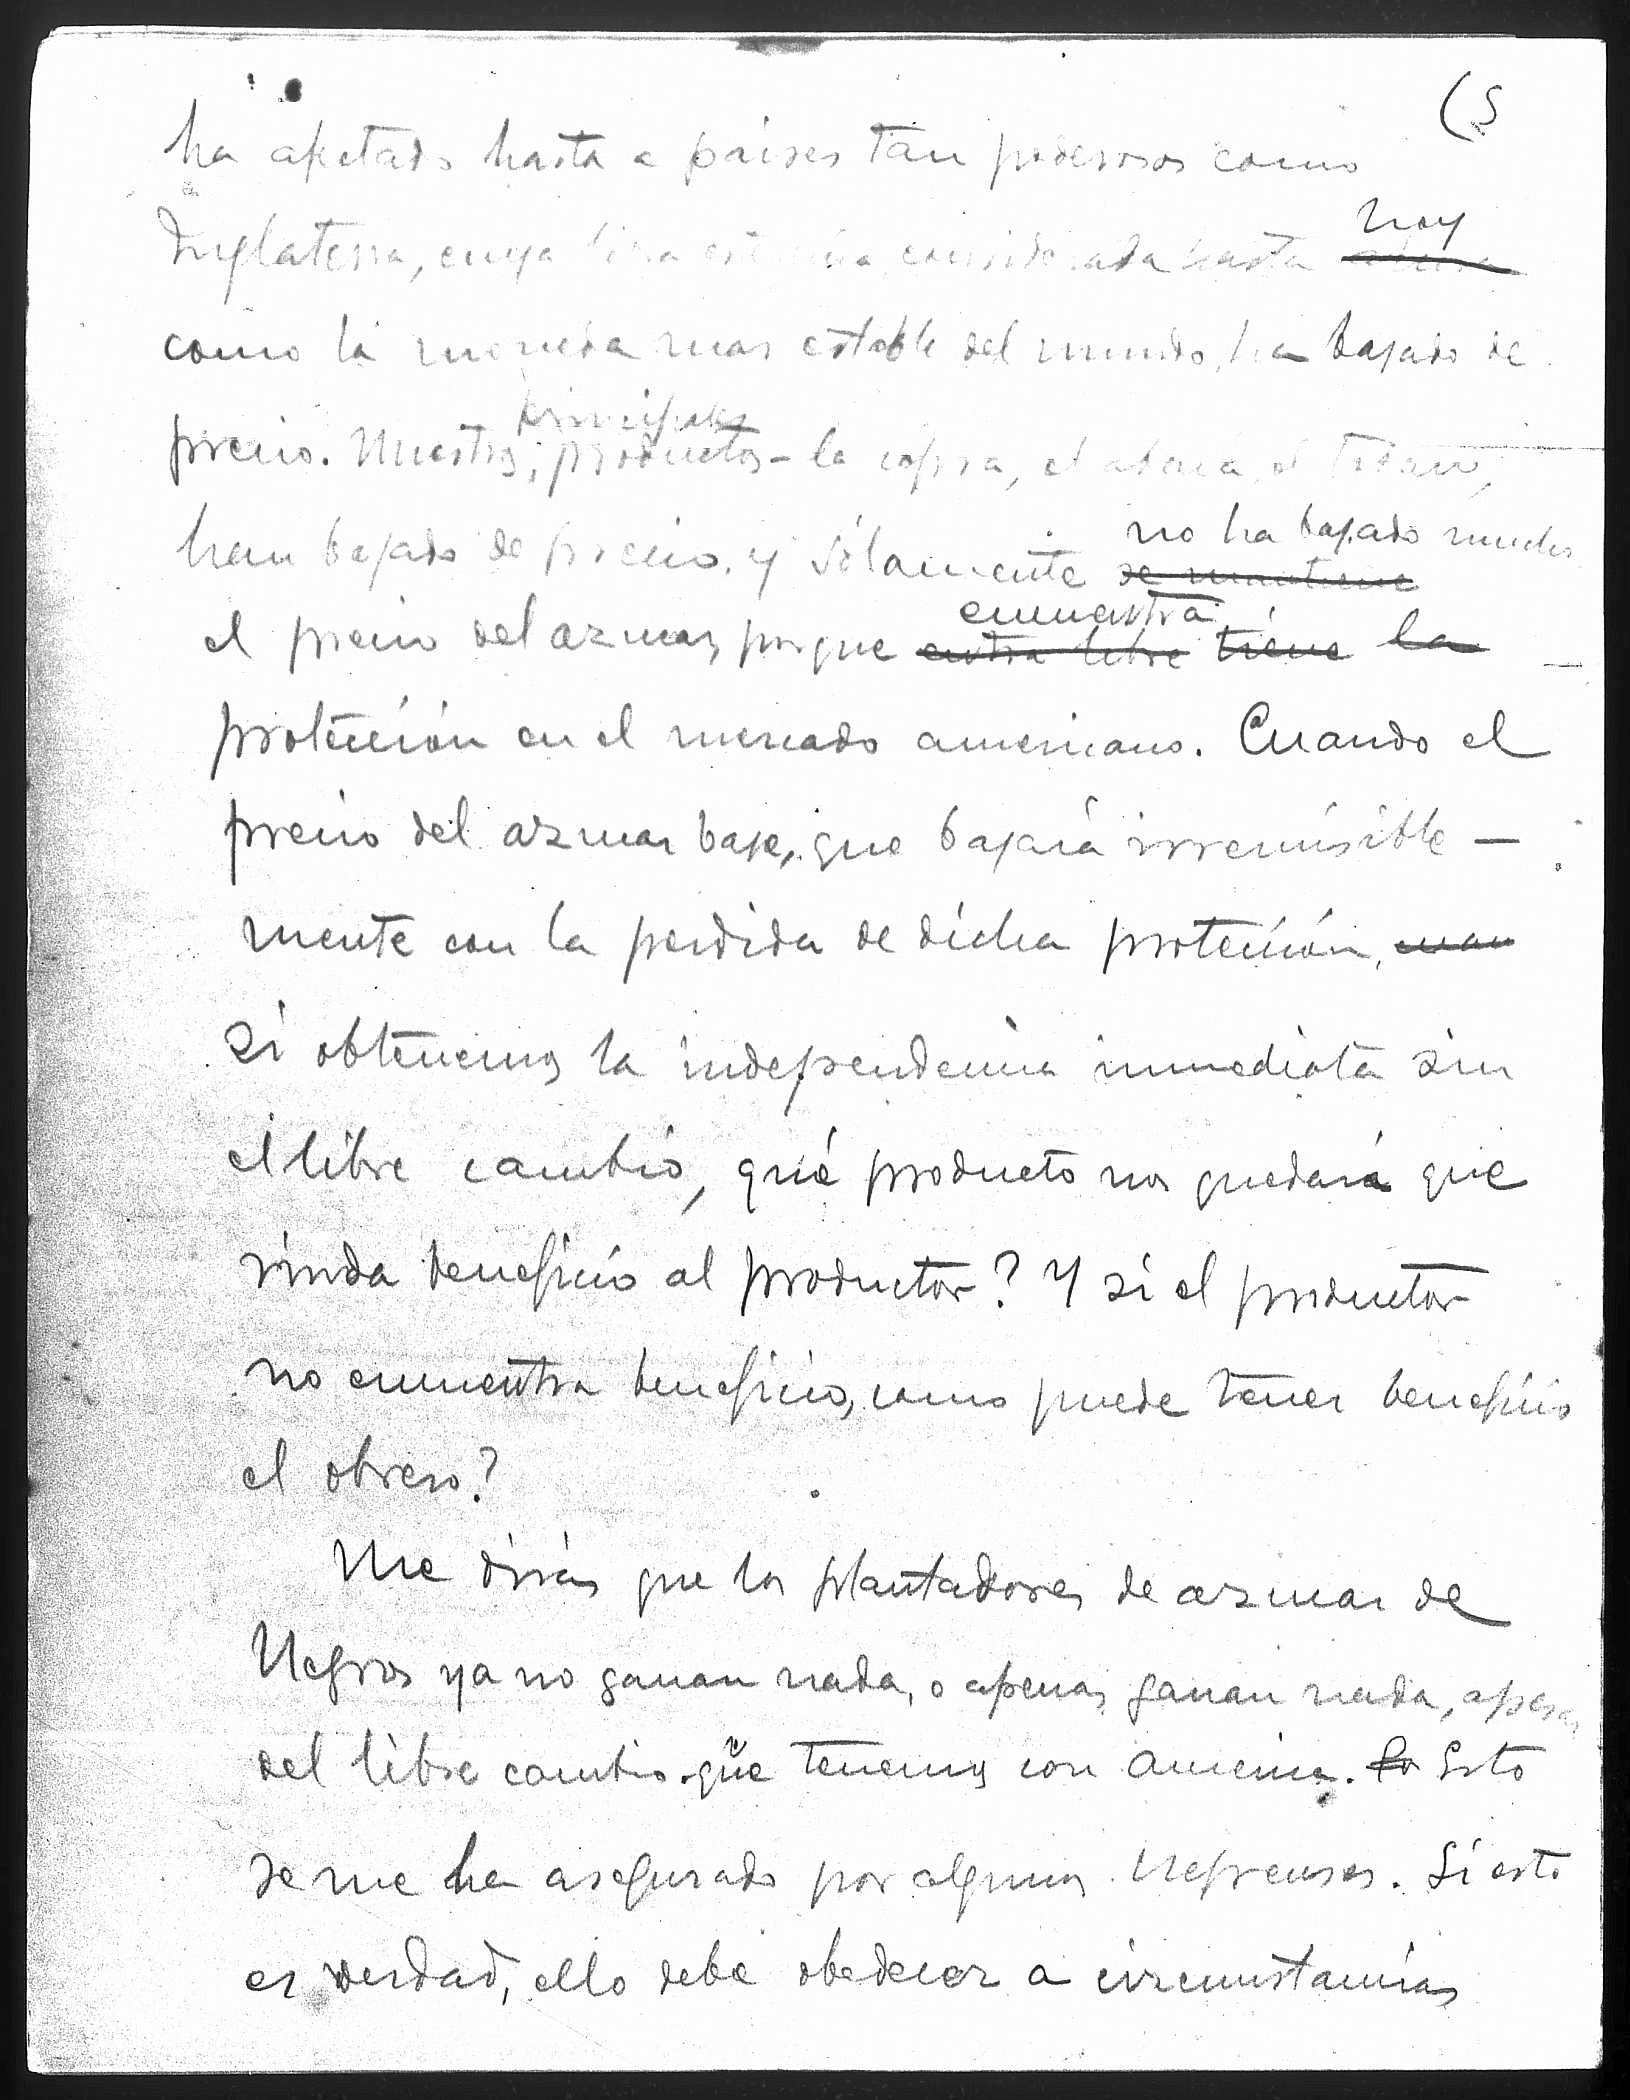 (5
ha afectado hasta a paises tan poderosos como
Inglaterra, cuya libra esterlina, considerada hasta ~~ahora~~ hoy
como la moneda mas estable del mundo, ha bajado de
precio. Nuestros principales productos - la copra, el abaca, el tabaco,
han bajado de precio. y sólamente ~~se mantiene~~ no ha bajado mucho
el precio del azucar, porque ~~entra libre tiene la~~ encuentra
protección en el mercado americano. Cuando el
precio del azucar baje, que bajará irremisible-
mente con la perdida de dicha protección, ~~cuan~~
si obtenemos la independencia inmediata sin
el libre cambio, qué producto nos quedará que
rinda beneficio al productor? Y si el productor
no encuentra beneficio, como puede tener beneficio
el obrero?
Me dirás que los plantadores de azucar de
Negros ya no ganan nada, o apenas ganan nada, apesar
del libre cambio que tenemos con America. Esto
se me ha asegurado por algunos Negrenses. Si esto
es verdad, ello debe obedecer a circunstancias